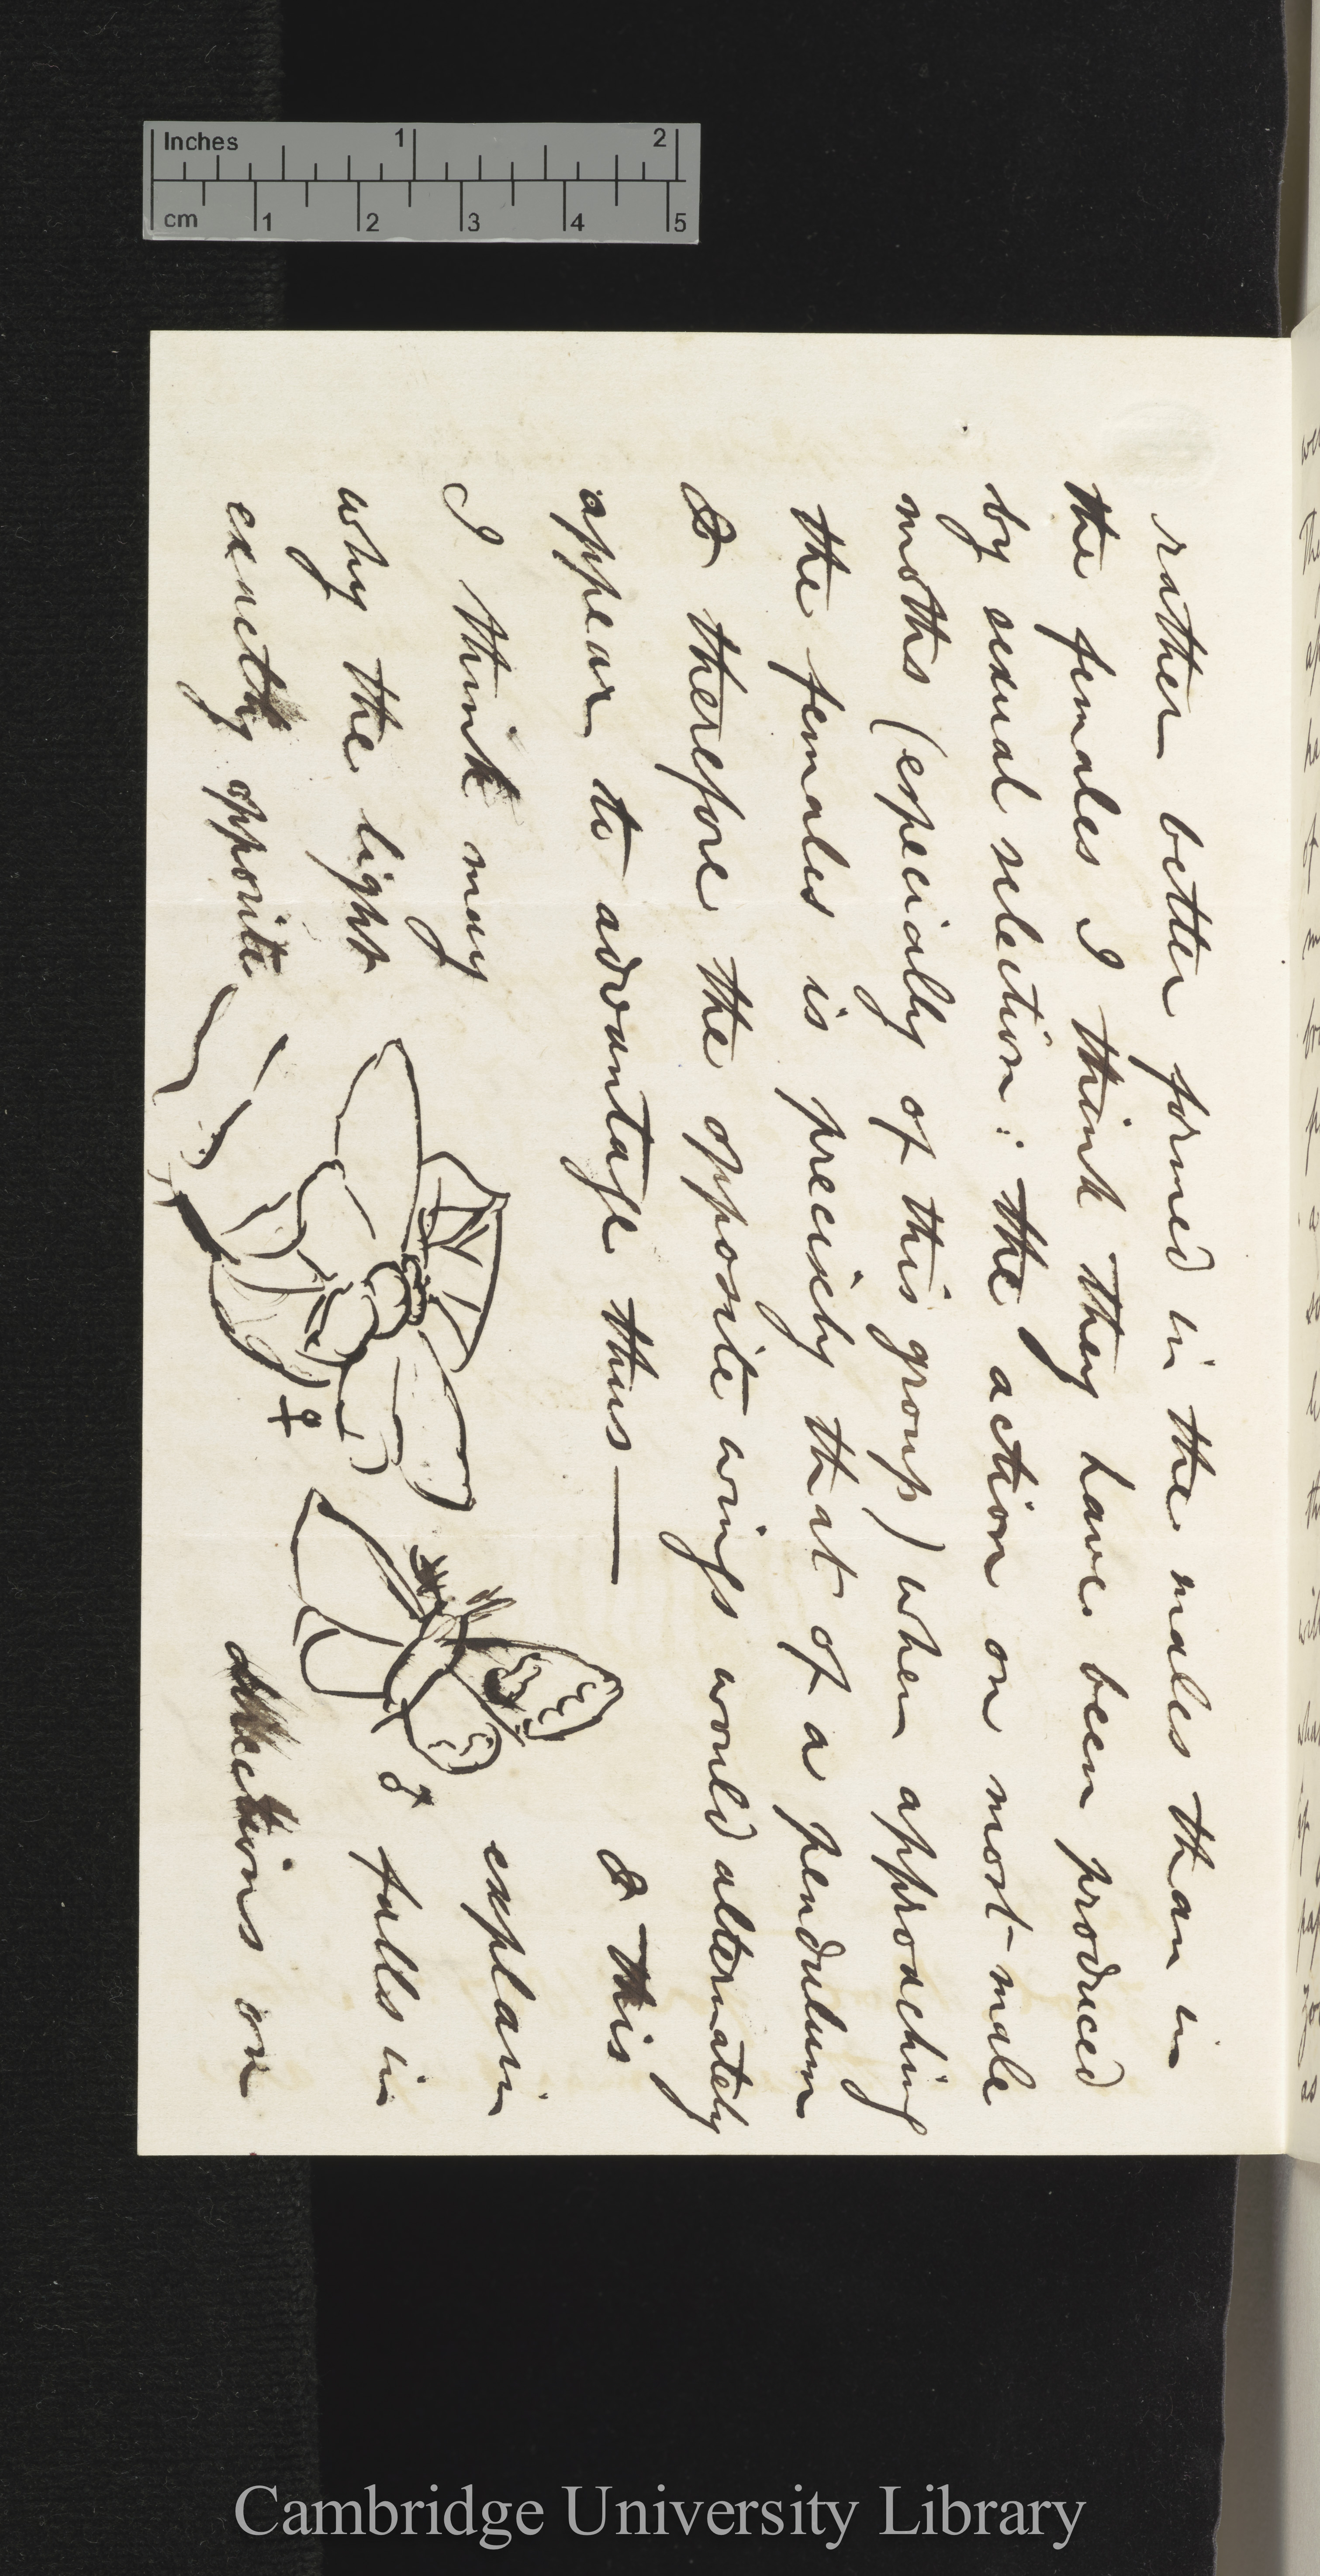 Inches 1 2
cm 1 2 3 4 5
rather better formed in the males than in
the females I think they have been produced
by sexual selection: the action on most male
moths (especially of this group) when approaching
the females is precisely that of a pendulum
& therefore the opposite wings would alternately
appear to advantage thus —
& this
I think may explain
why the light falls in
exactly opposite directions on
♀
♂
Cambridge University Library